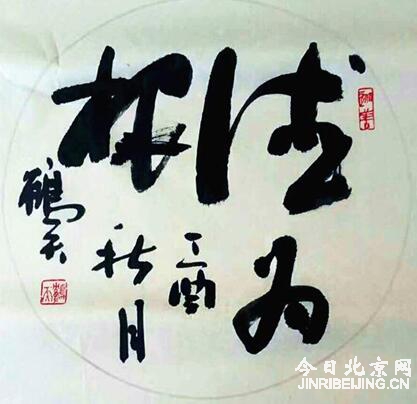 德为
根
丁酉
秋月
鹤天
今日北京网
JINRIBEIJING.CN